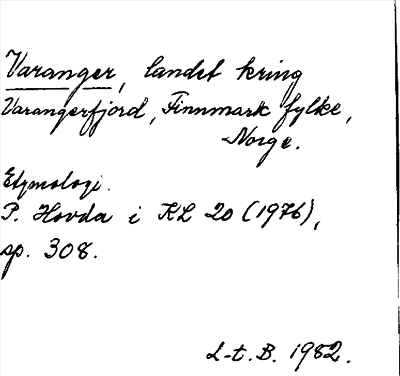 Varanger, landet kring
Varangerfjord, Finnmark fylke,
Norge.
Etymologi.
P. Hovda i KL 20 (1976),
sp. 308.
L-t. B. 1982.